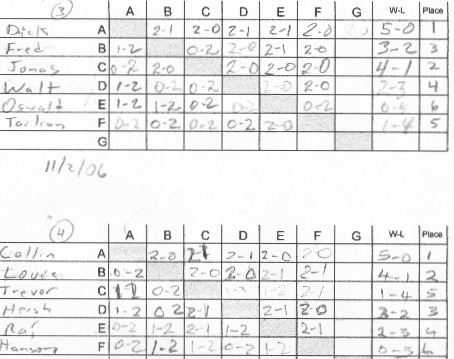 3 A B C D E F G W-L Place
Dick A 2-1 2-0 2-1 2-1 2-0 5-0 1
Fred B 1-2 0-2 2-0 2-1 2-0 3-2 3
Jonas C 0-2 2-0 2-0 2-0 2-0 4-1 2
Walt D 1-2 0-2 0-2 2-0 2-0 2-3 4
Oswald E 1-2 1-2 0-2 0-2 0-2 6
F 0-2 0-2 0-2 0-2 2-0 1-4 5
G
11/2/06
4 A B C D E F G W-L Place
Collin A 2-0 2-1 2-0 2-0 5-0 1
B 0-2 2-0 2-0 2-1 2-1 4-1 2
Trevor C 0-2 1-2 1-2 2-1 1-4 5
Hersh D 1-2 0 2 2-1 2-1 2-0 3-2 3
Raj E 0-2 1-2 2-1 1-2 2-1 2-3 4
F 0-2 1-2 1-2 0-2 1-2 0-5 6